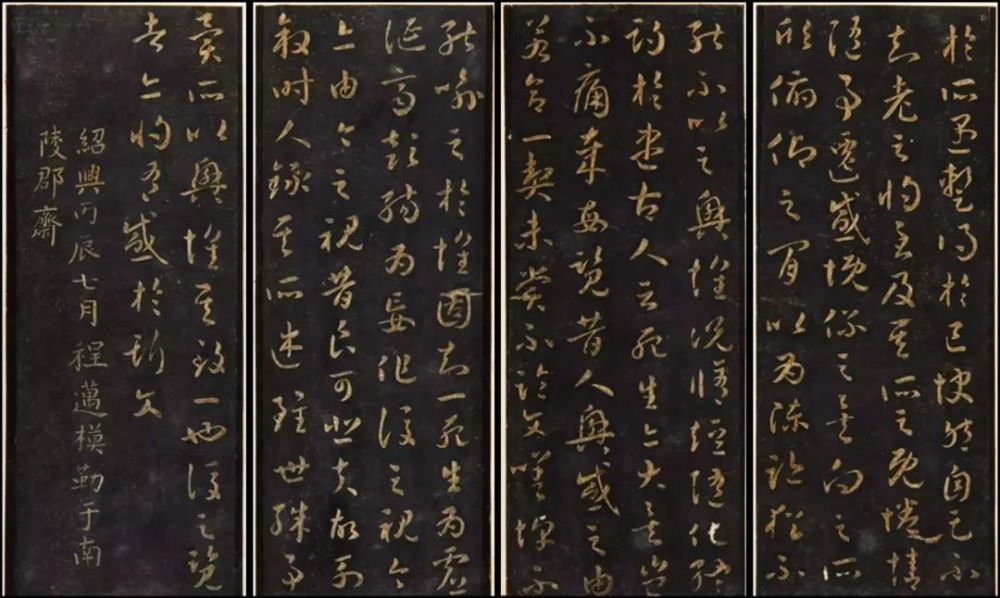 於所遇暫得於己快然自足不
知老之將至及其所之既倦情
隨事遷感慨係之矣向之所
欣俯仰之間以為陳跡猶不
能不以之興懷況脩短隨化終
期於盡古人云死生亦大矣豈
不痛哉每覽昔人興感之由
若合一契未嘗不臨文嗟悼不
能喻之於懷固知一死生為虛
誕齊彭殤為妄作後之視今
亦由今之視昔良可悲夫故列
敘時人錄其所述雖世殊事
異所以興懷其致一也後之覽
者亦將有感於斯文
紹興丙辰七月程邁模勒于南
陵郡齋